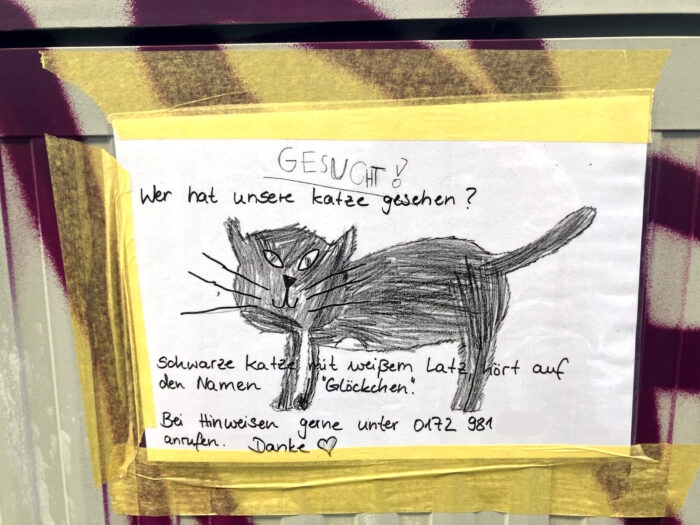 GESUCHT!?
Wer hat unsere Katze gesehen?
Schwarze Katze mit weißem Latz, hört auf
den Namen "Glöckchen".
Bei Hinweisen gerne unter 0172 981
anrufen. Danke ♡